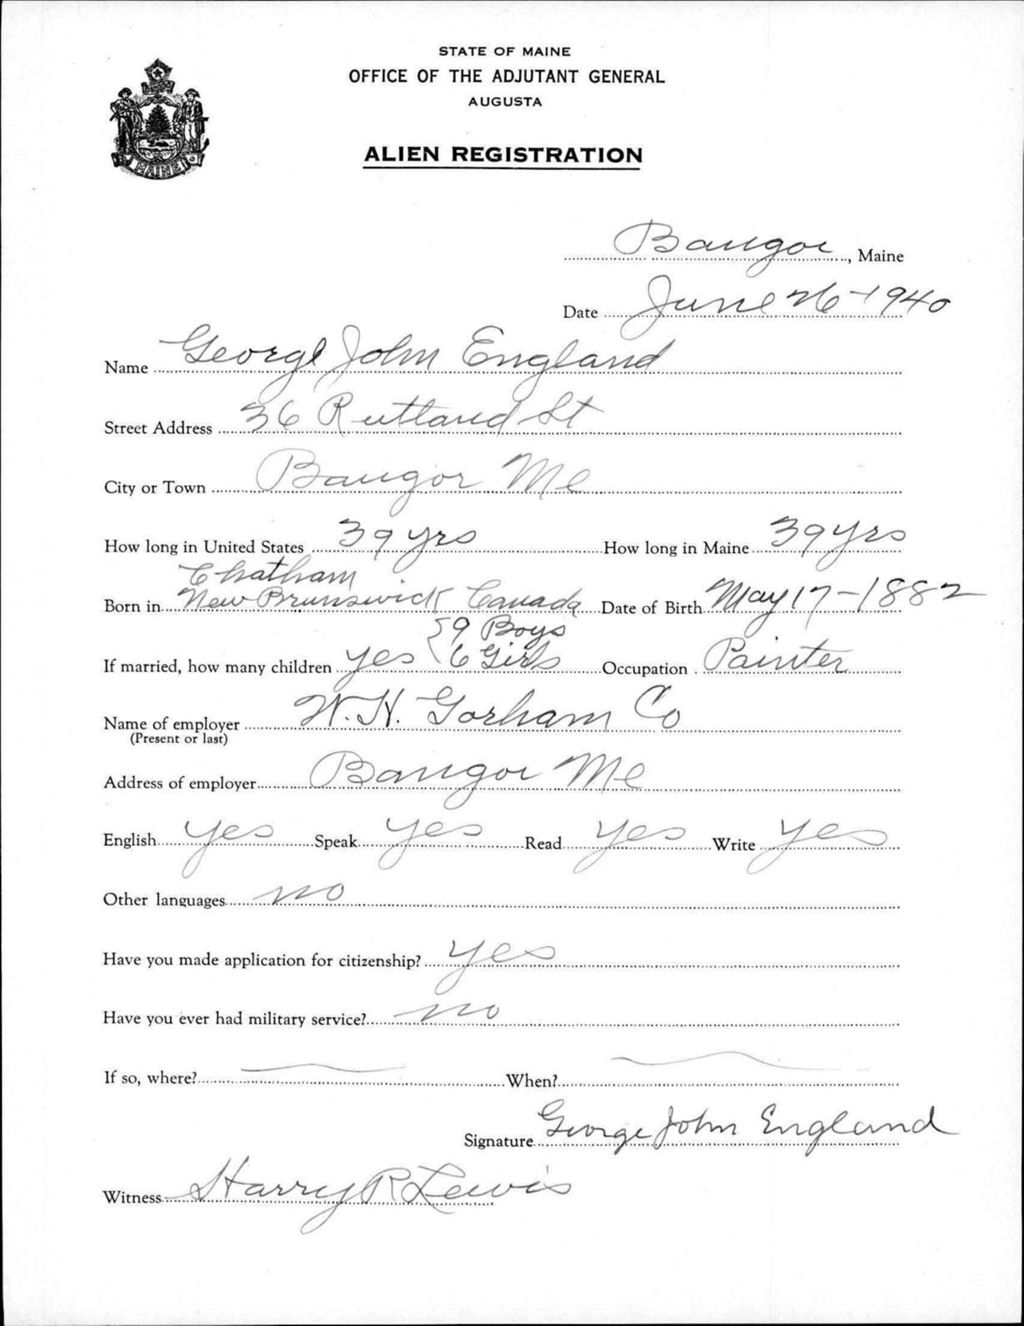 STATE OF MAINE
OFFICE OF THE ADJUTANT GENERAL
AUGUSTA
ALIEN REGISTRATION
MAINE
Bangor, Maine
Date June 26-1940
Name George John England
Street Address 36 Rutland St
City or Town Bangor Me
How long in United States 39 yrs How long in Maine 39 yrs
Chatham
Born in New Brunswick Canada Date of Birth May 17-1882
9 Boys
If married, how many children yes 6 Girls Occupation Painter
Name of employer W. H. Gorham Co
(Present or last)
Address of employer Bangor Me
English yes Speak yes Read yes Write yes
Other languages no
Have you made application for citizenship? yes
Have you ever had military service? no
If so, where? When?
Signature George John England
Witness Harry R Lewis